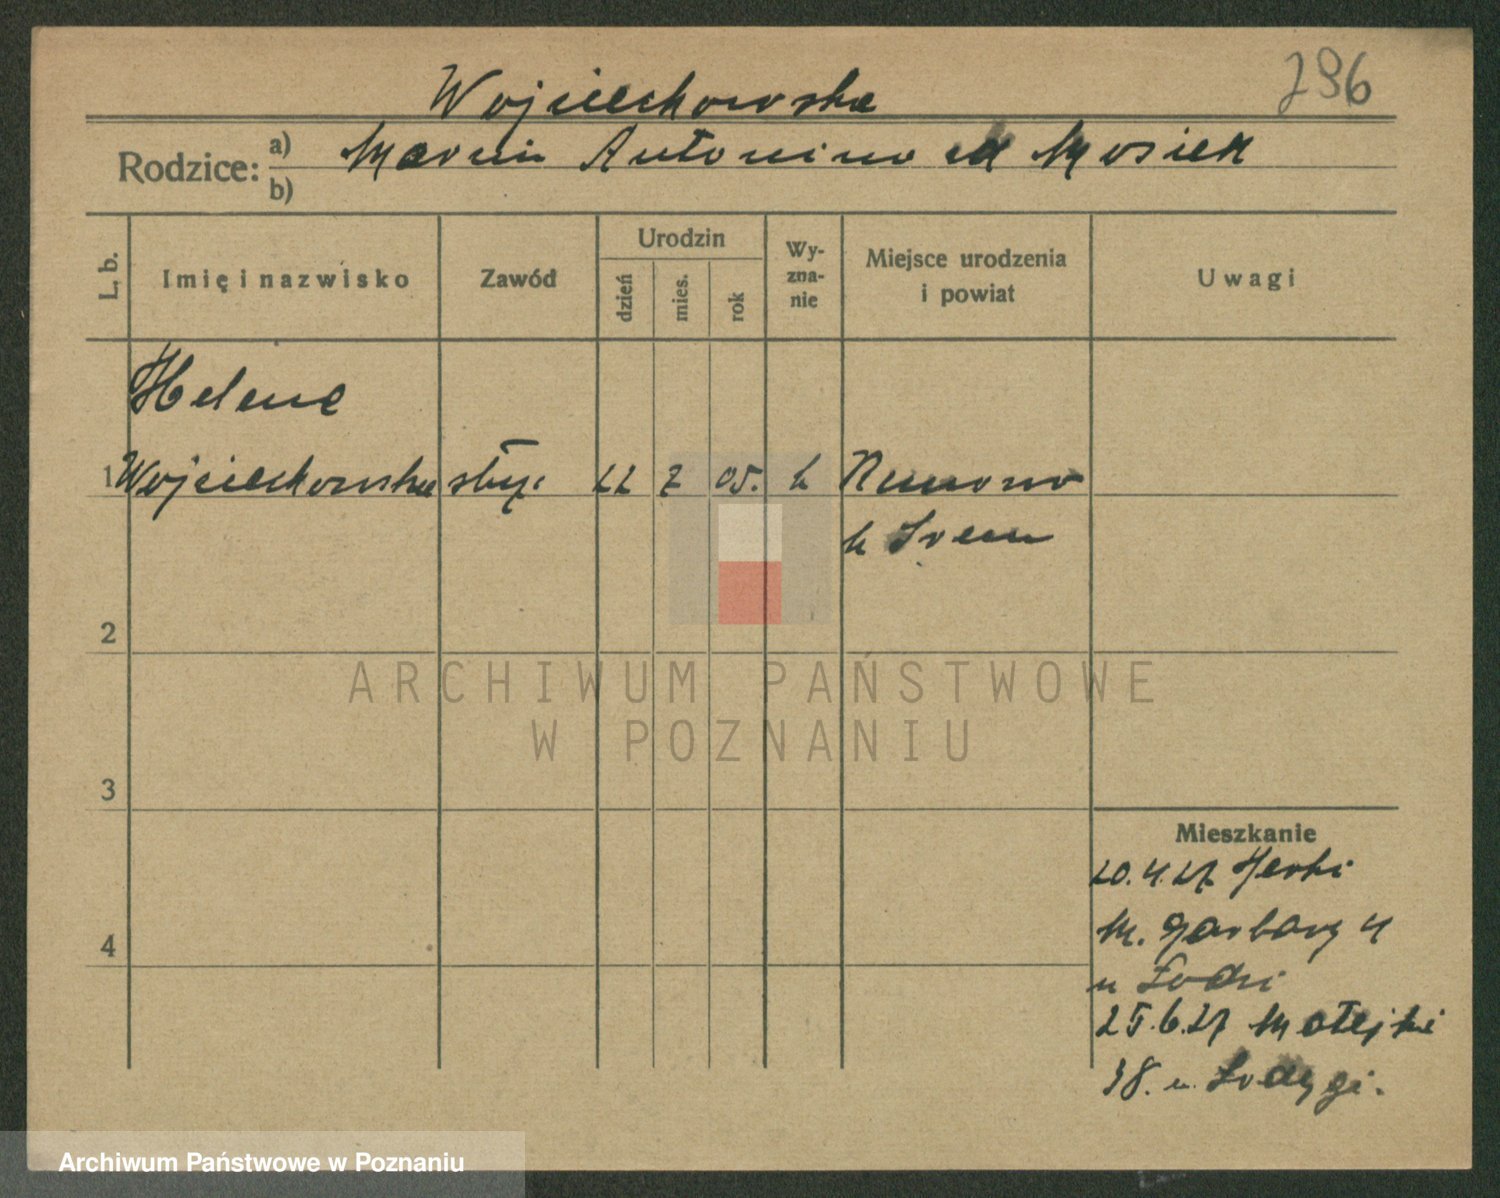 Wojciechowska
296
Rodzice:
a) Marcin Antonina
b)
L. b.
Imię i nazwisko
Zawód
Urodzin
dzień
mies.
rok
Wy-
zna-
nie
Miejsce urodzenia
i powiat
Uwagi
Helena
1 Wojciechowska służ. 22 7 05. k
2
3
4
ARCHIWUM PAŃSTWOWE
W POZNANIU
Mieszkanie
20.4.27
M. Garbary 4
u Łodzi
25.6.27 Matejki
38. u
Archiwum Państwowe w Poznaniu